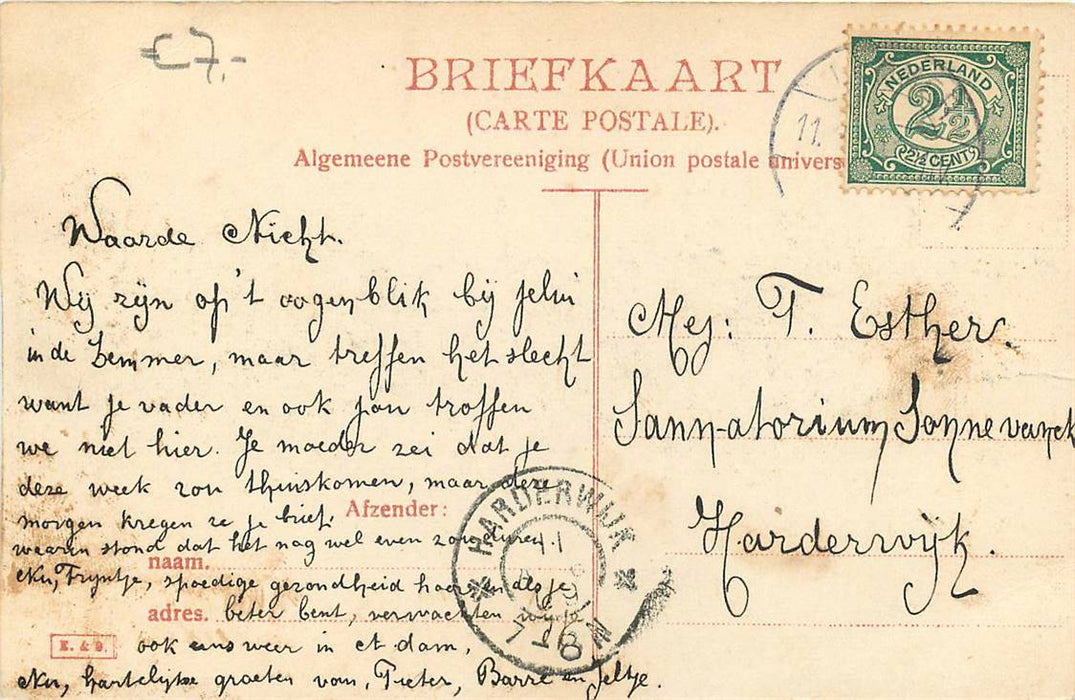 €7,-
BRIEFKAART
(CARTE POSTALE).
Algemeene Postvereeniging (Union postale univers
NEDERLAND
2½
2½ CENT
11.
Waarde Nicht.
Wij zijn op 't oogenblik bij
in de Lemmer, maar treffen het slecht
want je vader en ook Jan troffen
we niet hier. Je moeder zei dat je
deze week zou thuiskomen, maar deze
morgen kregen ze je brief,
waarin stond dat het nog wel even zou duren.
Nu, Tryntje, spoedige gezondheid hoor en als je
beter bent, verwachten wij je
ook eens weer in A dam,
Nu, hartelijke groeten van, Pieter, Barre en Jeltje.
Afzender:
naam.
adres.
E. & B.
Mej: T. Esther.
Sann-atorium Sonnevanck
Harderwijk.
HARDERWIJK